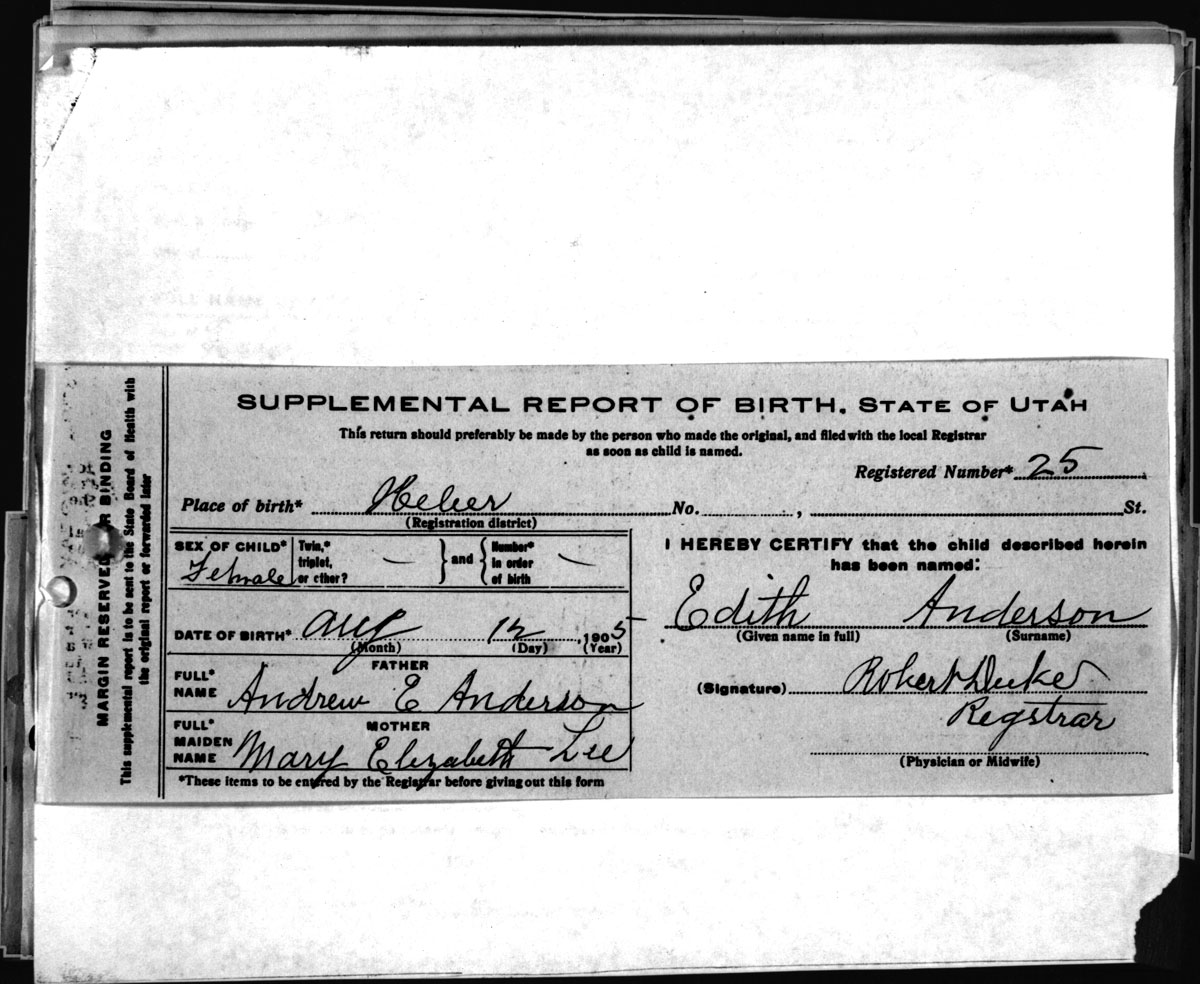 SUPPLEMENTAL REPORT OF BIRTH. STATE OF UTAH
This return should preferably be made by the person who made the original, and filed with the local Registrar
as soon as child is named.
Registered Number* 25
Place of birth* Heber No. , St.
(Registration district)
SEX OF CHILD* Female
Twin,* triplet, or other? —
and
Number* in order of birth —
DATE OF BIRTH* Aug 12, 1905
(Month) (Day) (Year)
FATHER
FULL* NAME Andrew E Anderson
MOTHER
FULL* MAIDEN NAME Mary Elizabeth Lee
*These items to be entered by the Registrar before giving out this form
I HEREBY CERTIFY that the child described herein
has been named:
Edith Anderson
(Given name in full) (Surname)
(Signature) Robert Duke
Regstrar
(Physician or Midwife)
MARGIN RESERVED FOR BINDING
This supplemental report is to be sent to the State Board of Health with
the original report or forwarded later
FULL NAME